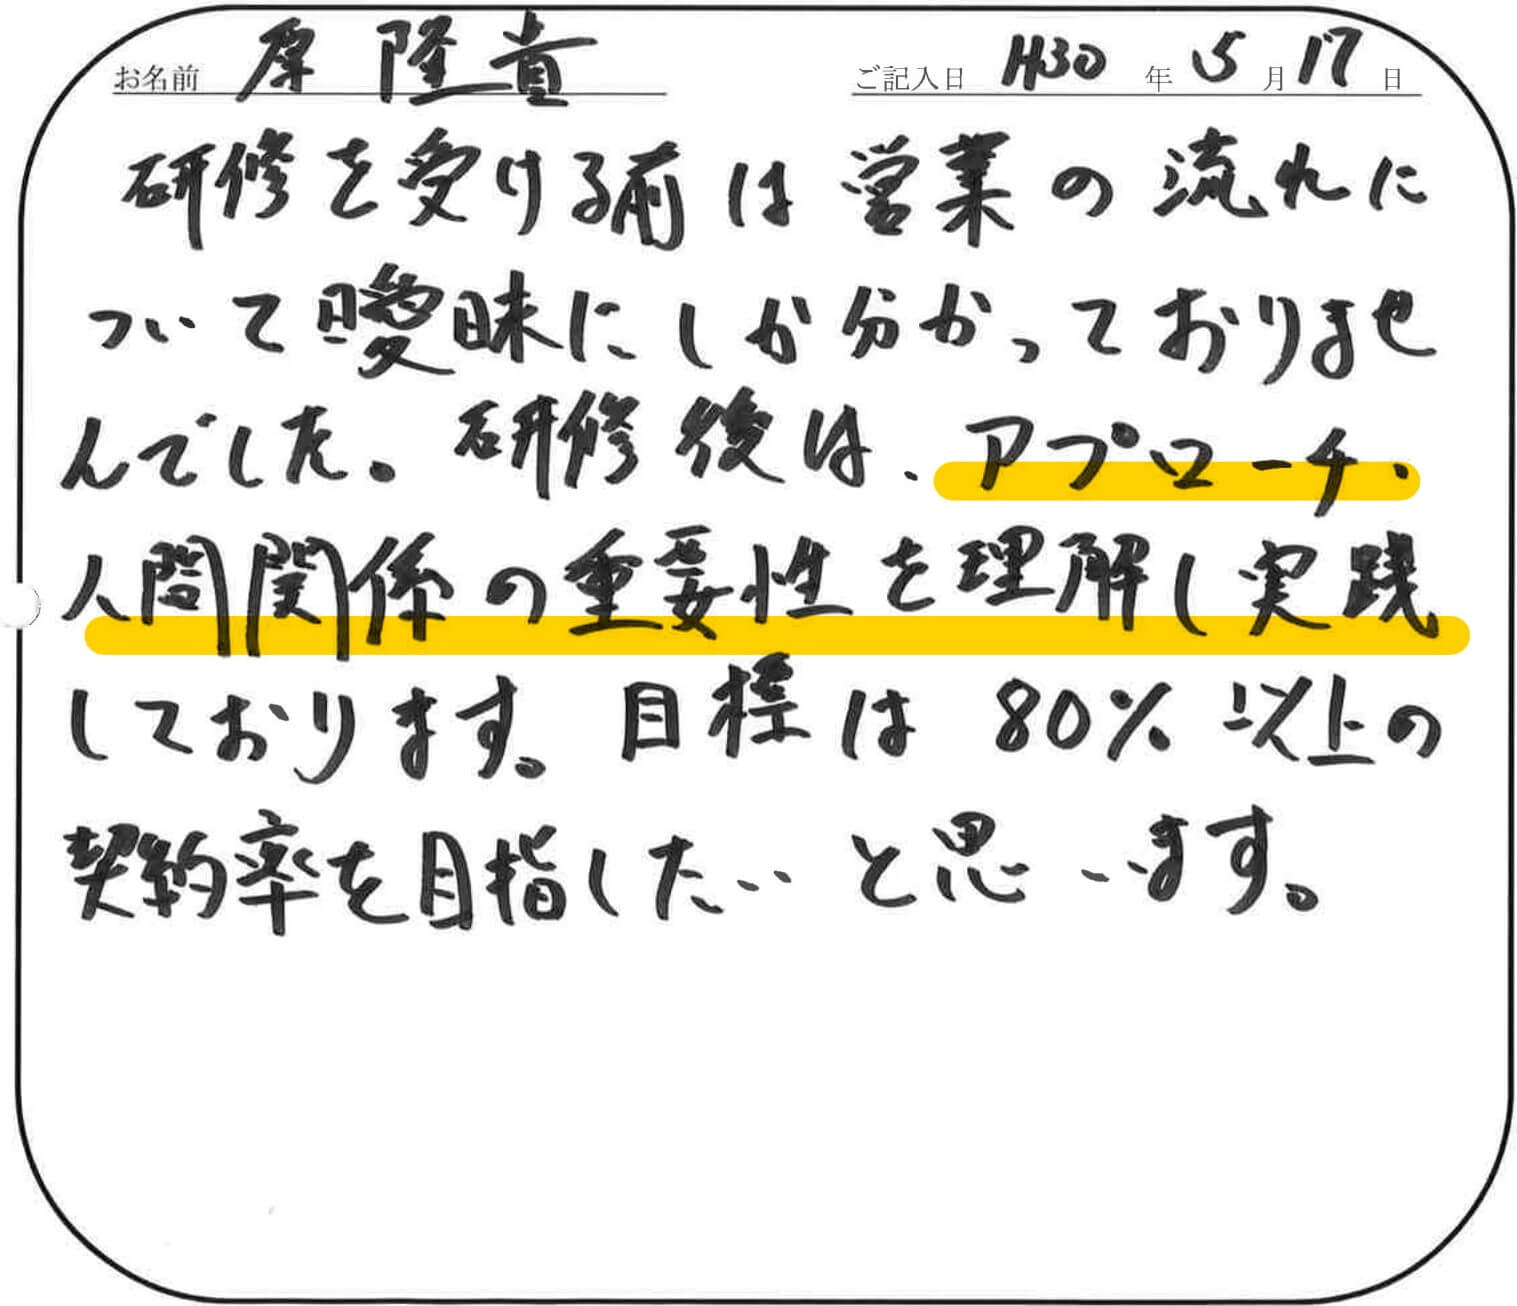 お名前 原 隆貴 ご記入日 H30 年 5 月 17 日
研修を受ける前は営業の流れに
ついて曖昧にしか分かっておりませ
んでした。研修後は、アプローチ、
人間関係の重要性を理解し実践
しております。目標は80%以上の
契約率を目指したいと思います。